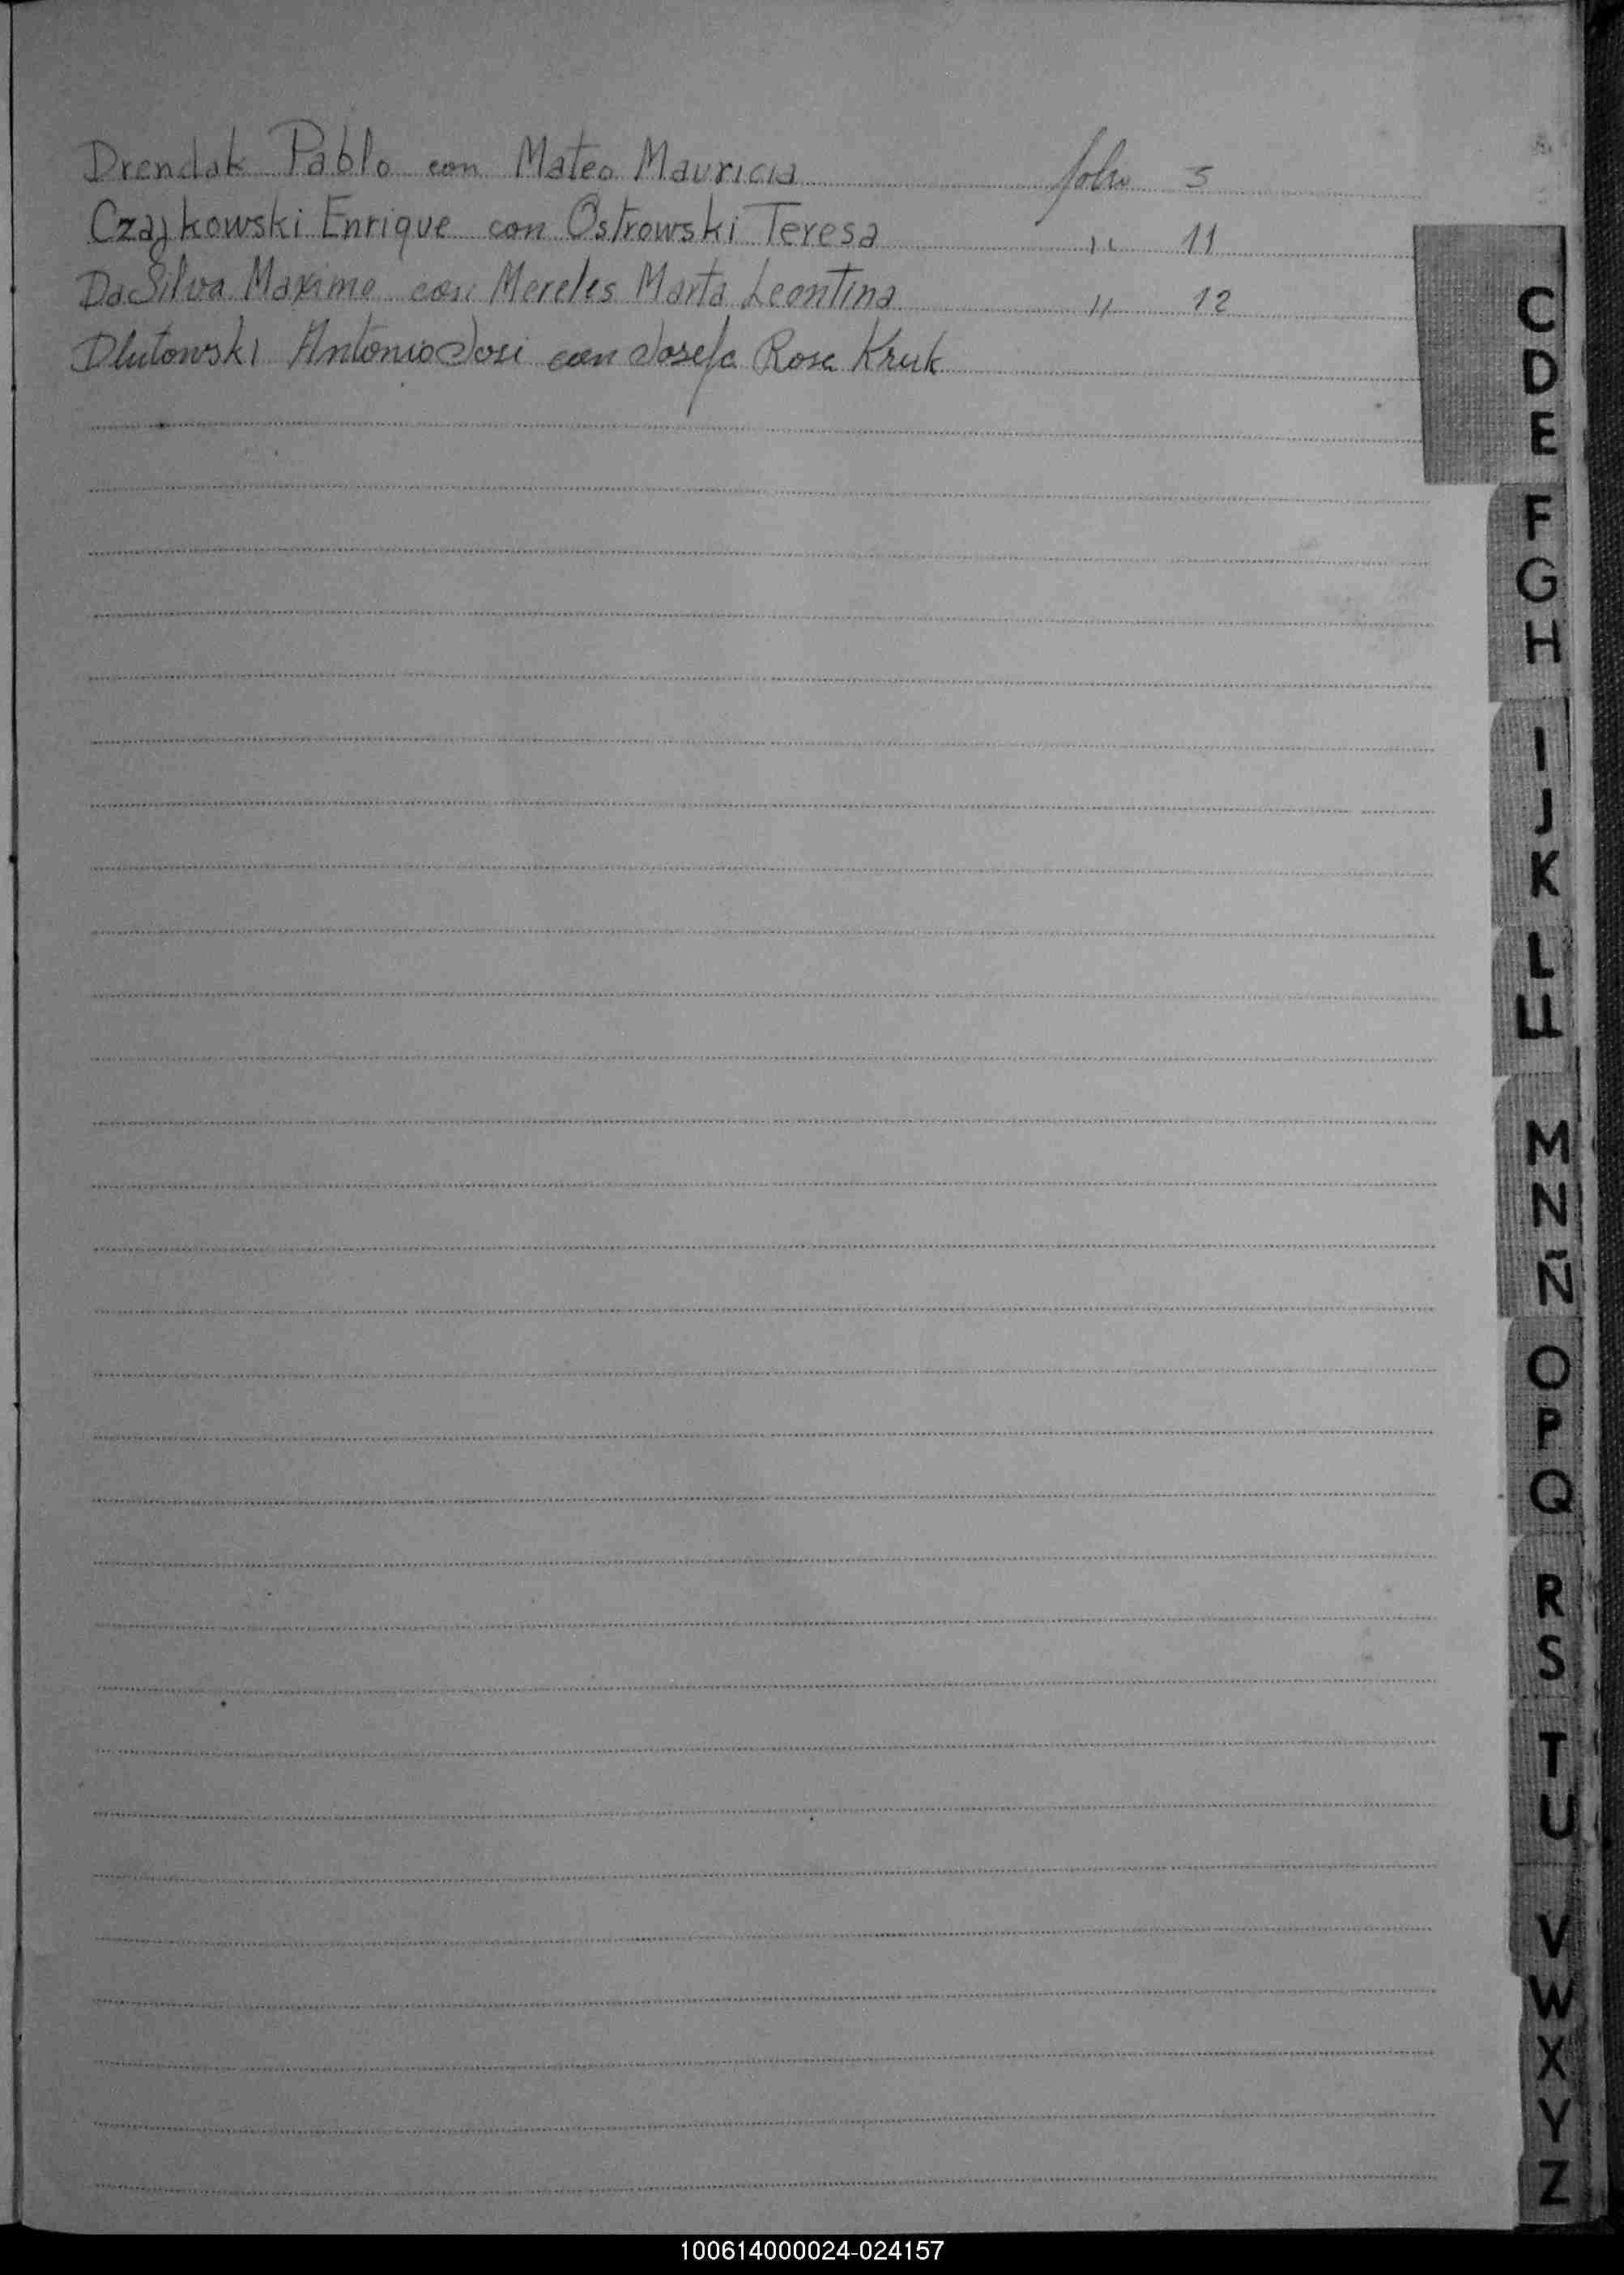 Drendak Pablo con Mateo Mauricia folio 5
Czajkowski Enrique con Ostrowski Teresa " 11
Da Silva Maximo con Mereles Marta Leontina " 12
Dlutowski Antonio José con Josefa Rosa Kruk
C
D
E
F
G
H
I
J
K
L
LL
M
N
Ñ
O
P
Q
R
S
T
U
V
W
X
Y
Z
100614000024-024157